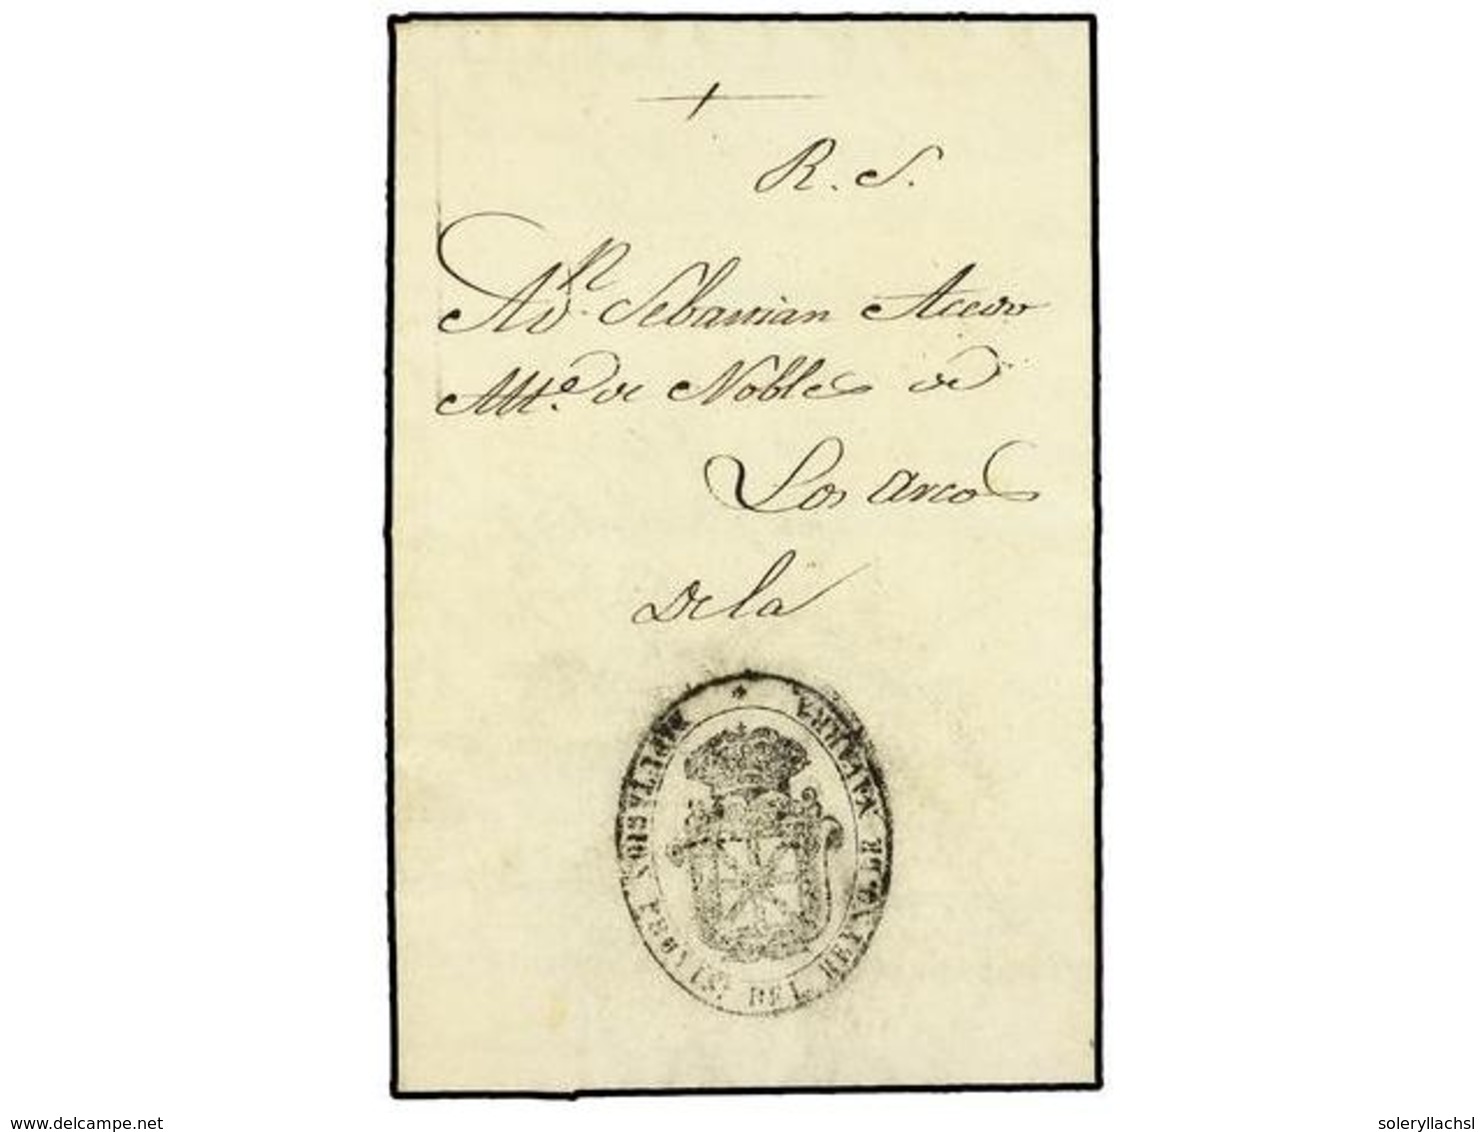 R. S.
A Dn. Sebastian Acedo
Alte. de Nobles de
Los Arcos
De la
DIPUTASION PROVISl. DEL REYNO DE NAVARRA
delcampe.net
soleryllachsl